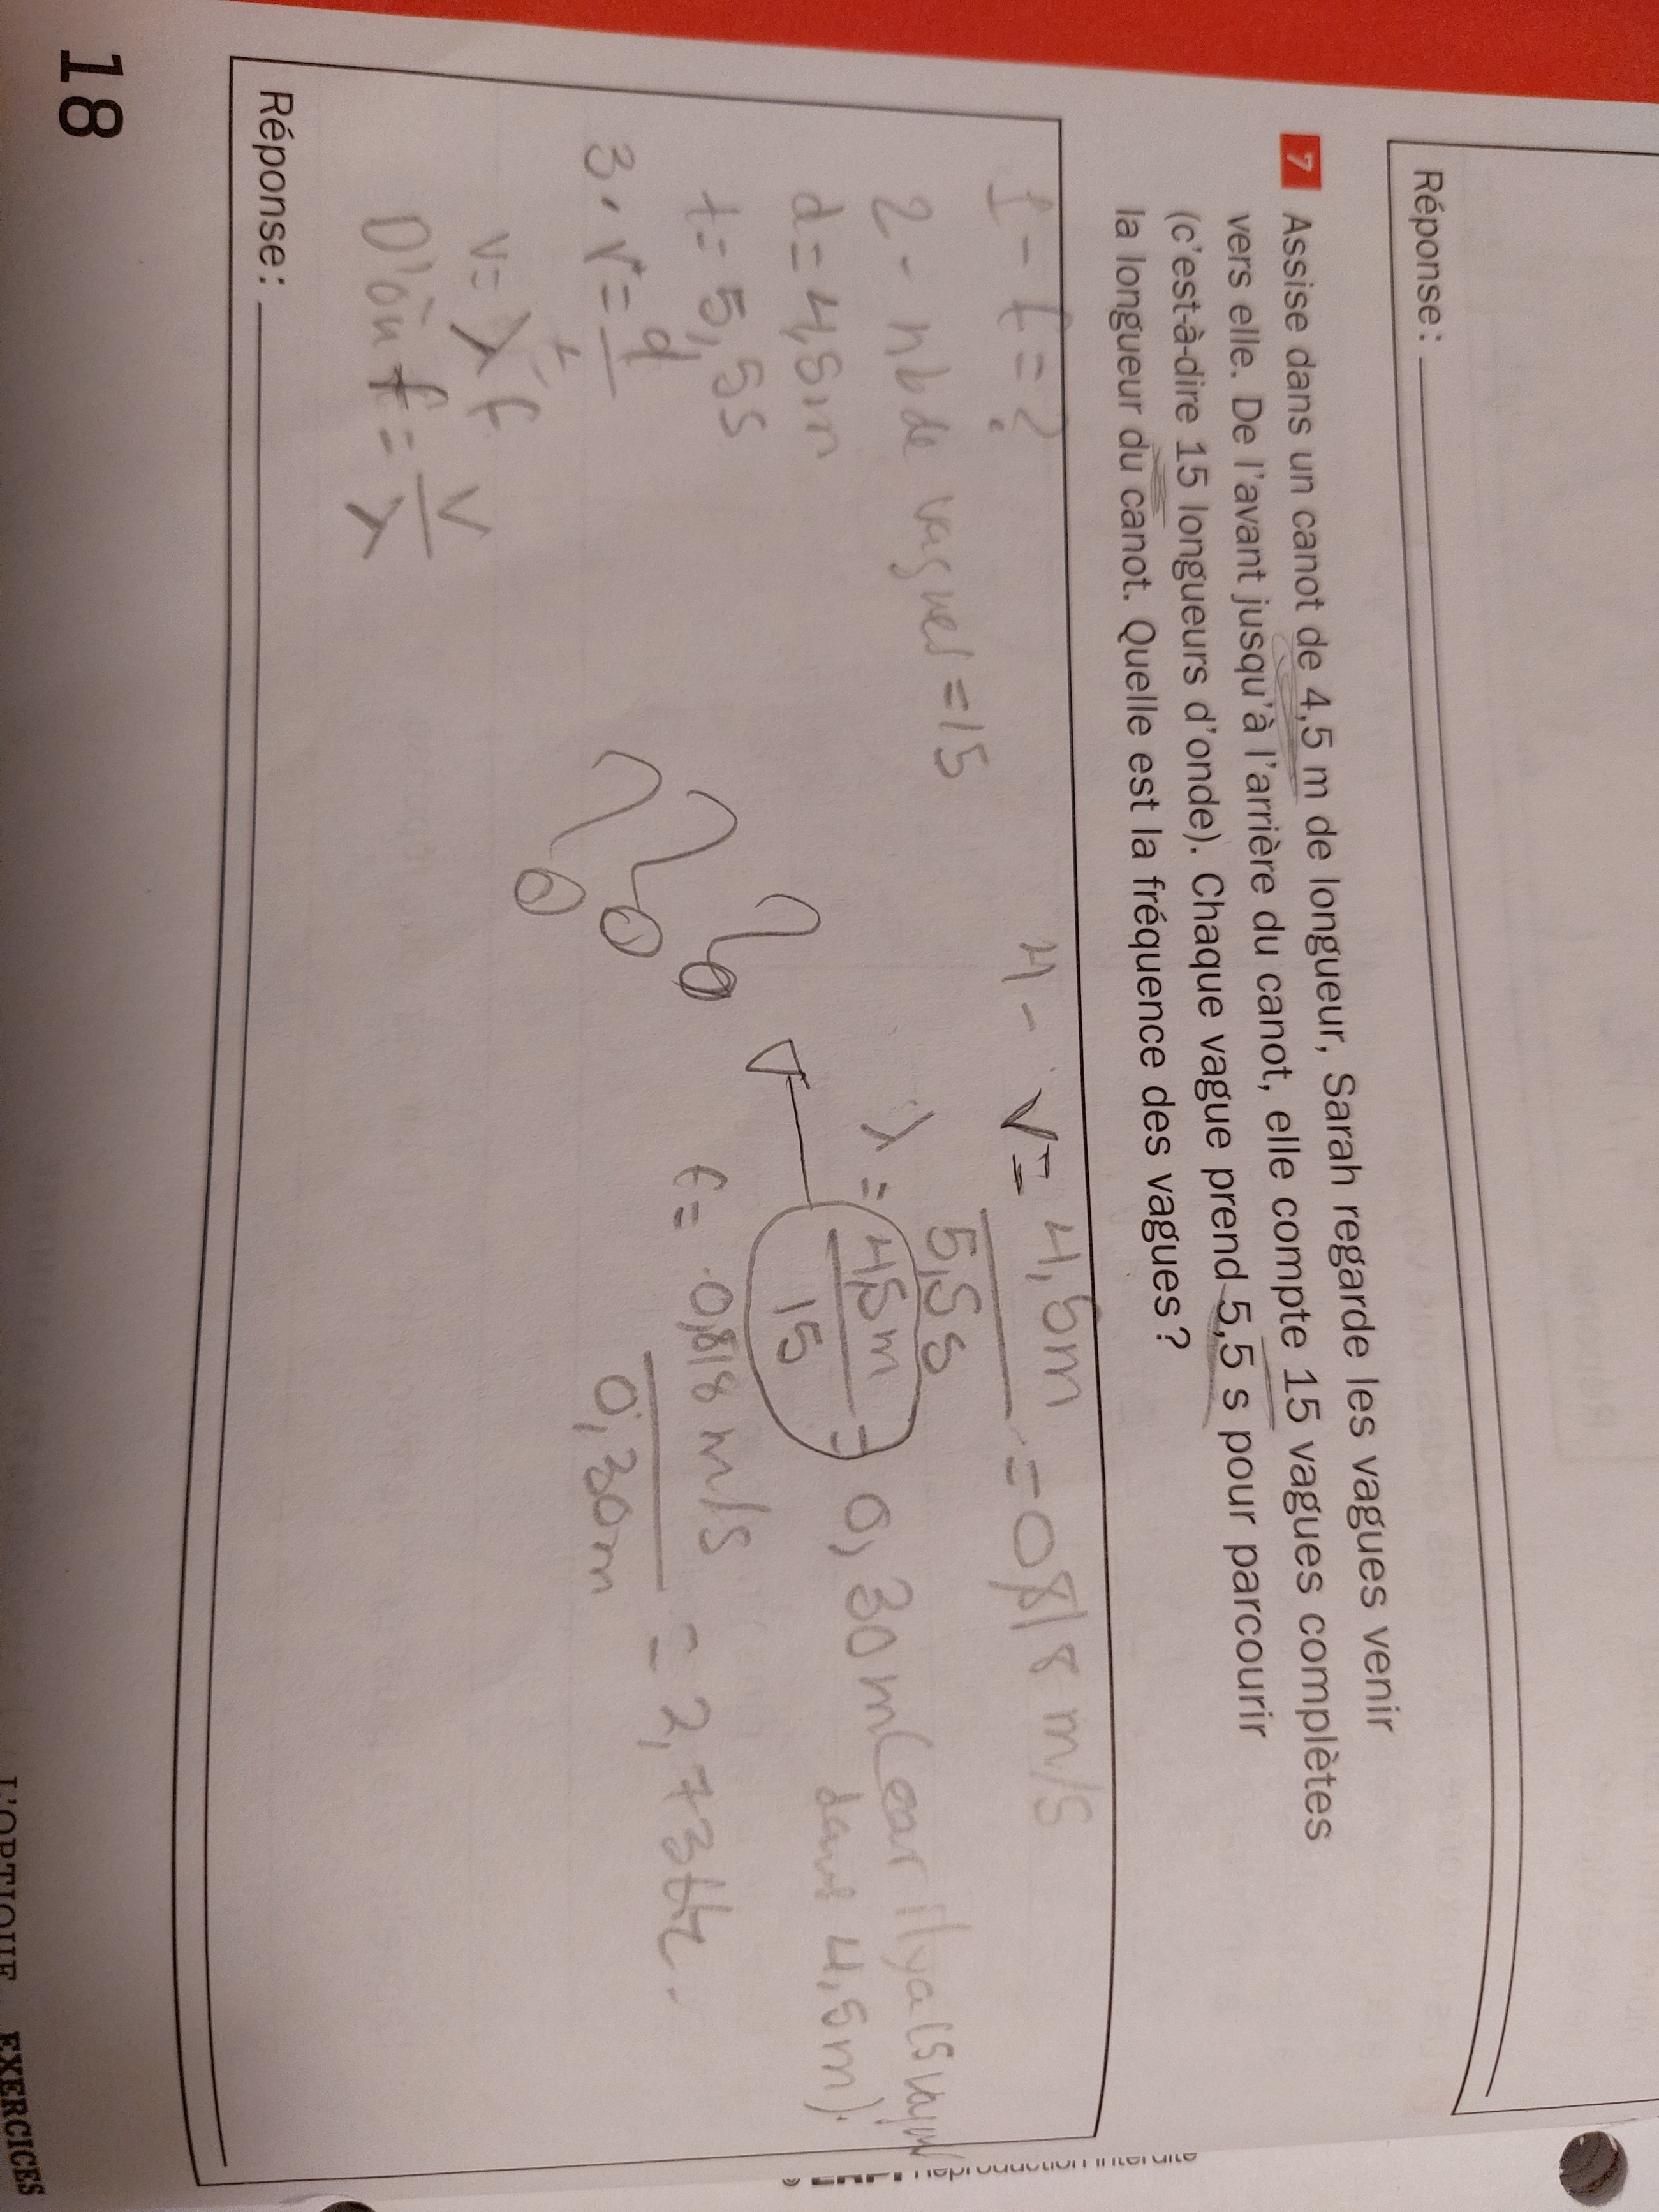 Réponse :
7 Assise dans un canot de 4,5 m de longueur, Sarah regarde les vagues venir
vers elle. De l'avant jusqu'à l'arrière du canot, elle compte 15 vagues complètes
(c'est-à-dire 15 longueurs d'onde). Chaque vague prend 5,5 s pour parcourir
la longueur du canot. Quelle est la fréquence des vagues ?
1 - f = ?
2 - nb de vagues = 15
d = 4,5m
t = 5,5s
3. v = d
t
v = λ f
D'où f = v
λ
4 - v = 4,5m = 0,818 m/s
5,5s
λ = 4,5m = 0,30m (car il y a 15 vagues
15 dans 4,5m).
???
f = 0,818 m/s = 2,73Hz.
0,30m
Réponse :
18
L'OPTIQUE EXERCICES
© ERPI Reproduction interdite